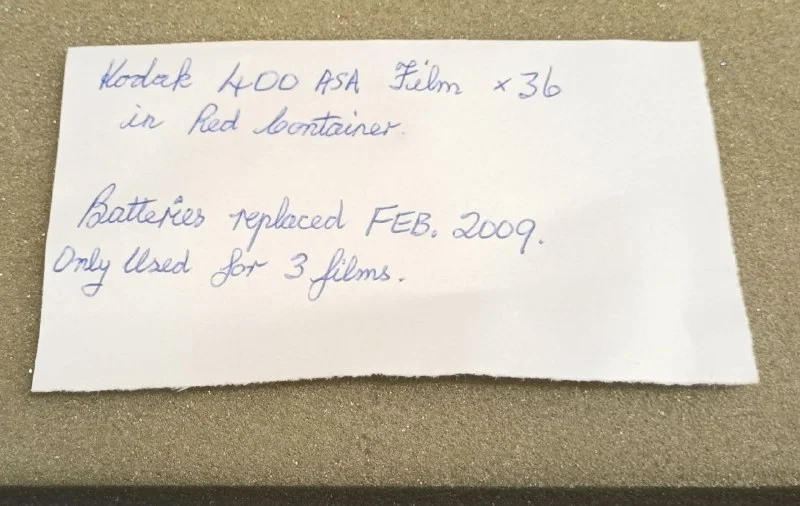 Kodak 400 ASA Film x 36
in Red Container.
Batteries replaced FEB. 2009.
Only Used for 3 films.